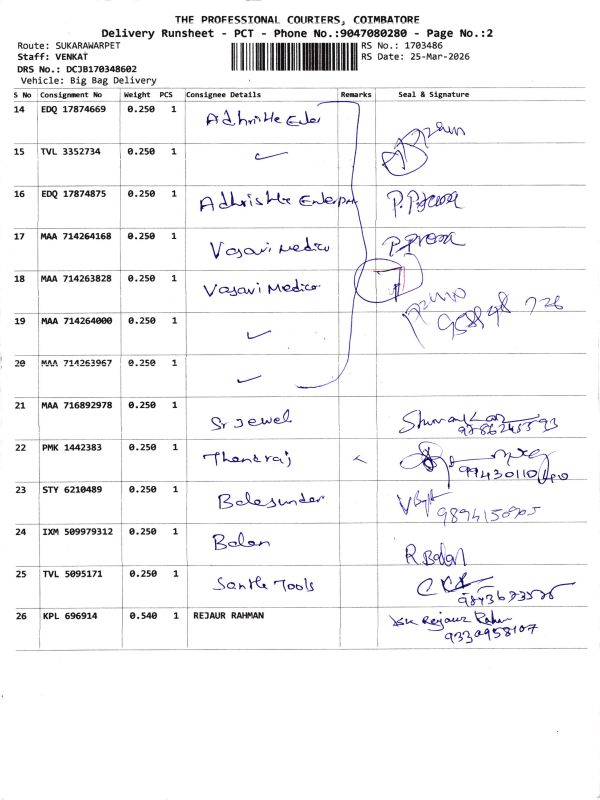 THE PROFESSIONAL COURIERS, COIMBATORE
Delivery Runsheet - PCT - Phone No.:9047080280 - Page No.:2
Route: SUKARAWARPET
Staff: VENKAT
DRS No.: DCJB170348602
Vehicle: Big Bag Delivery
RS No.: 1703486
RS Date: 25-Mar-2026
S No Consignment No Weight PCS Consignee Details Remarks Seal & Signature
14 EDQ 17874669 0.250 1
15 TVL 3352734 0.250 1
16 EDQ 17874875 0.250 1
17 MAA 714264168 0.250 1 Vasavi Medico
18 MAA 714263828 0.250 1 Vasavi Medico
19 MAA 714264000 0.250 1
20 MAA 714263967 0.250 1
21 MAA 716892978 0.250 1 Sr Jewel
22 PMK 1442383 0.250 1
23 STY 6210489 0.250 1 Balasundar
24 IXM 509979312 0.250 1 Balan R. Balan
25 TVL 5095171 0.250 1 Tools
26 KPL 696914 0.540 1 REJAUR RAHMAN
9330958107